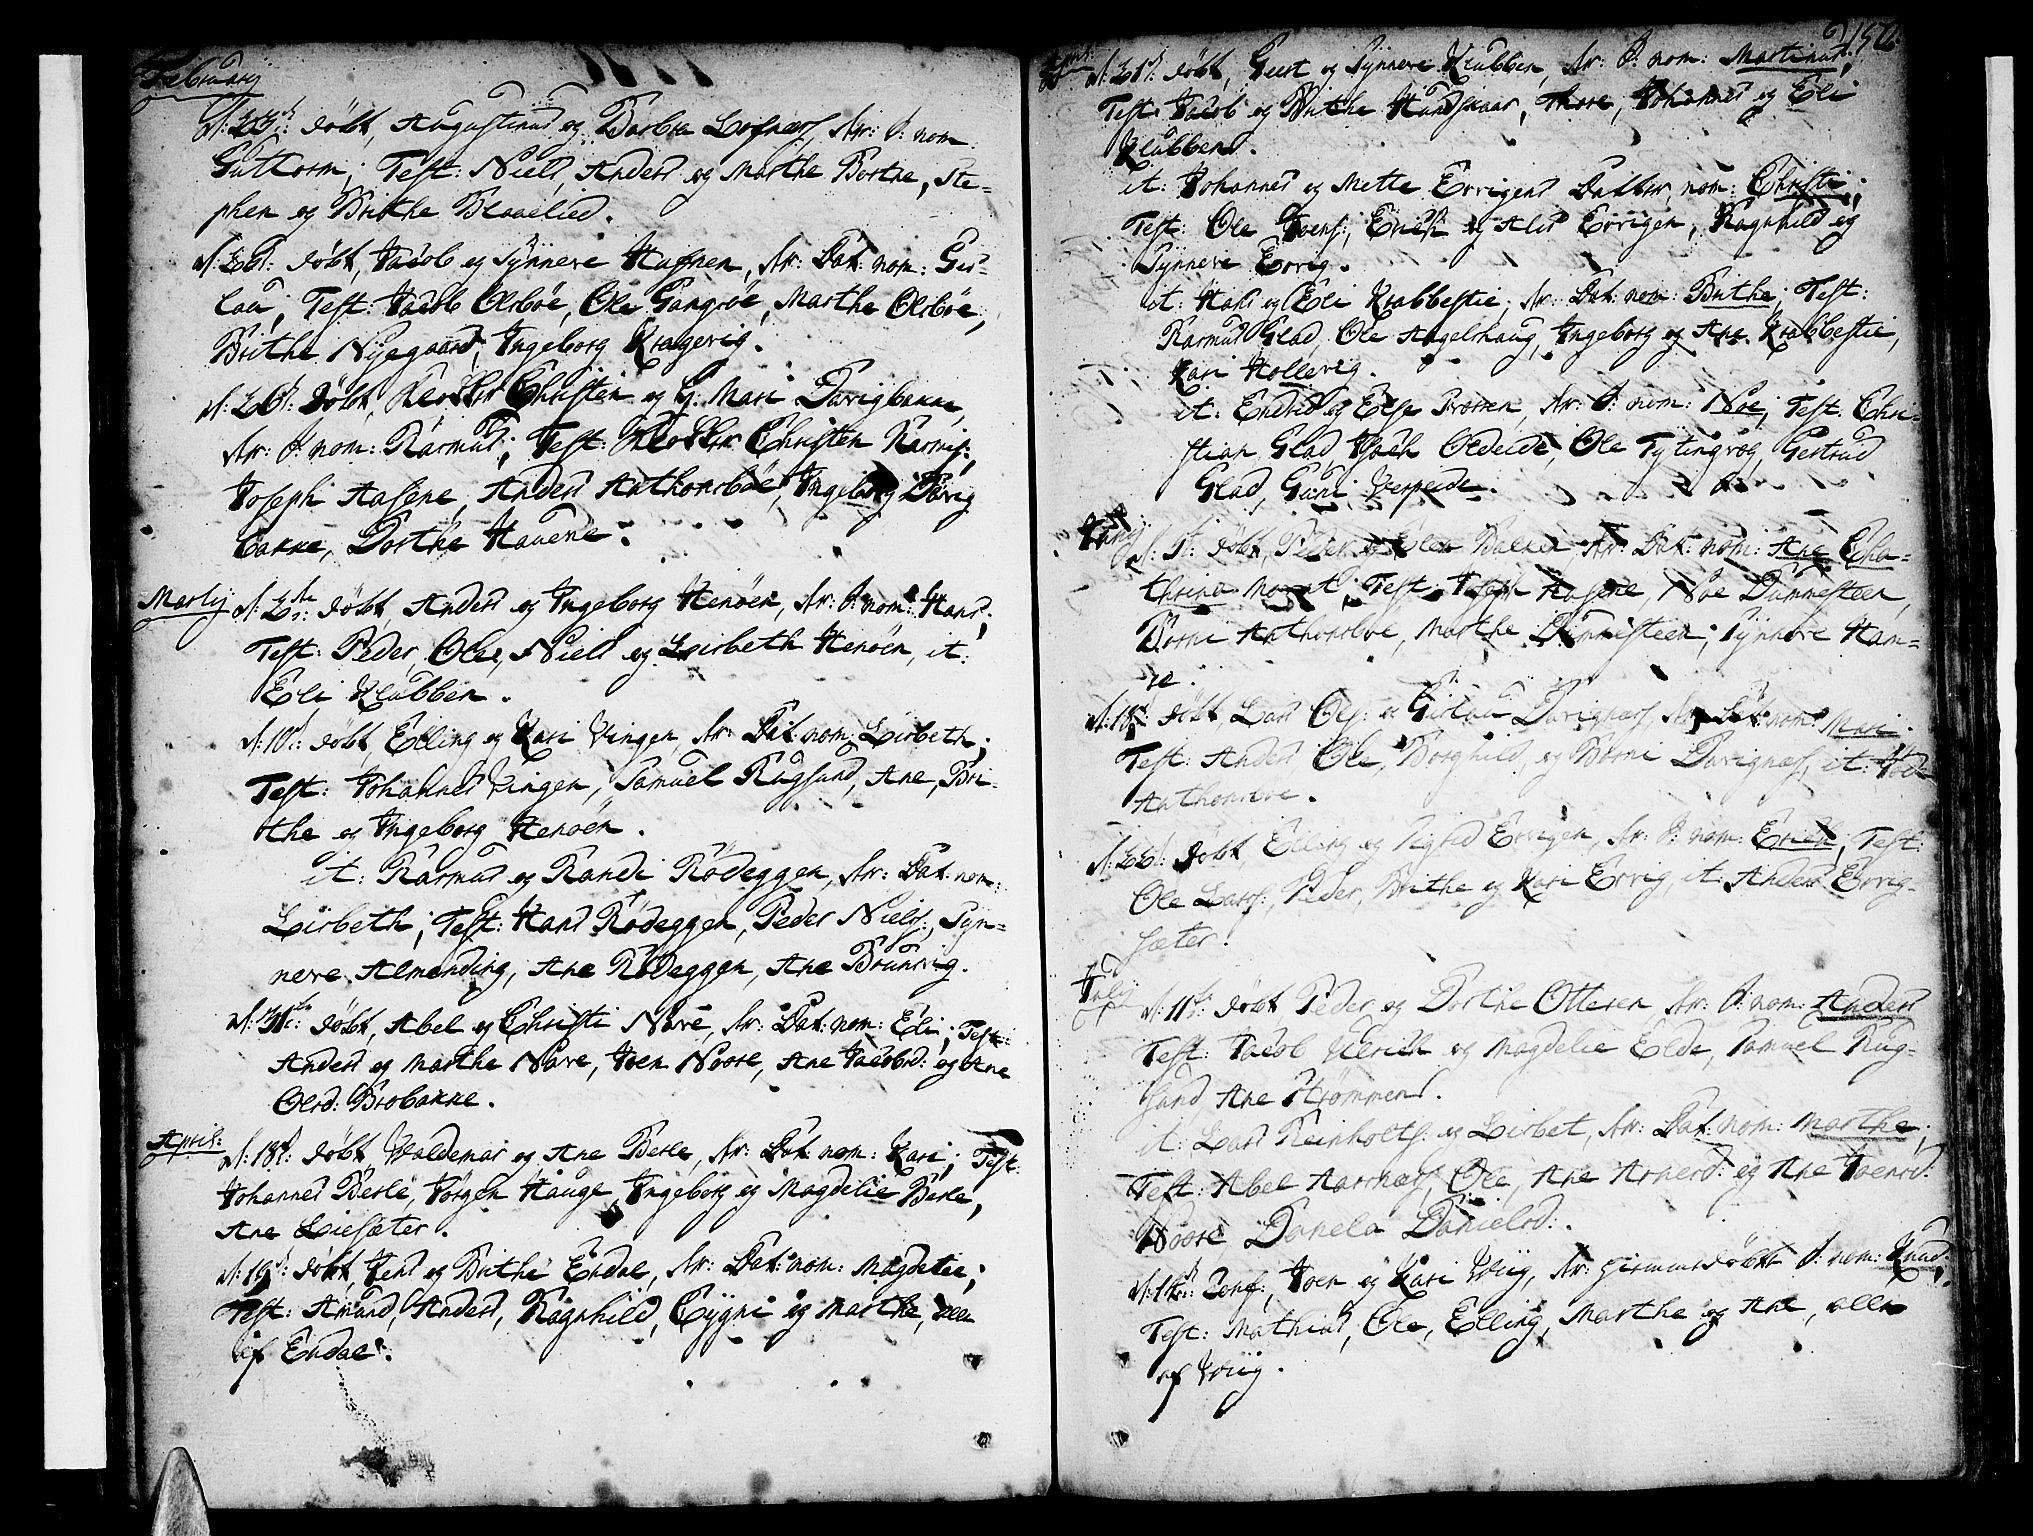 February
d: 23d: döbt, Augustinus og Barbra Lofnæs, Av: S: nom:
Guttorm; Test: Niels, Anders og Marthe Bortne, Ste-
phen og Brithe Blaaelied.
d: 26d: döbt, Jacob og Synneve Hafnen, Av: Dat: nom: Gis-
lau; Test: Jacob Olsböe, Ole Gangsöe, Marthe Olsböe,
Brithe Nÿegaard, Ingeborg Kragevig.
döbt, Klokker Christen og G: Mari Davigbakke,
Av: S: nom: Rasmus; Test: Klokker Christen Rasmus:,
Joseph Aasene, Anders Anthonsböe, Ingeborg Davig
bakke, Dorthe Hauene.
Martij
d: 2de: döbt, Anders og Ingeborg Henöen, Av: S: nom: Hans;
Test: Peder, Ole, Niels og Lisbeth Henöen, it:
Eli Klubben.
d: 10d: döbt, Elling og Kari Vingen, Av: Dat: nom: Lisbeth;
Test: Johannes Vingen, Samuel Rugsund, Ane, Bri-
the og Ingeborg Henöen.
it: Rasmus og Randi Rödeggen, Av: Dat: nom:
Lisbeth; Test: Hans Rödeggen, Peder Niels:, Syn-
neve Almending, Ane Rödeggen, Ane Brunsvig.
d: 31te: döbt, Abel og Christi Nave, Av: Dat: nom: Eli; Test:
Anders og Marthe Nave, Joen Noore, Ane Jacobsd: og Ane
Olsd: Brobakke.
April:
d: 18d: döbt Waldemar og Ane Berle, Av: Dat: nom: Kari; Test:
Johannes Berle, Jörgen Hauge, Ingeborg og Magdelie Berle,
Ane Liesæter.
d: 19d: döbt, Jens og Brithe Endal, Av: Dat: nom: Magdelie;
Test: Amund, Anders, Ragnhild, Cygni og Marthe, alle
af Endal.
April:
d: 21d: döbt, Geert og Synneve Klubben, Av: S: nom: Martinus;
Test: Jacob og Brithe Hundskaar, Thore, Johannes og Eli
Klubben.
it: Johannes og Mette Errigens Datter, nom: Christi;
Test: Ole Joens:, Erich og Alis Errigen, Ragnhild og
Synneve Errig.
it: Hans og Eli Krabbestie, Av: Dat: nom: Brithe; Test:
Rasmus Glad, Ole Angelshaug, Ingeborg og Ane Krabbestie,
Kari Hollevig.
it: Endre og Else Frossen, Av: S: nom: Noe; Test: Chri-
stian Glad, Isach Oldeide, Ole Tytingvog, Gertrud
Glad, Guri Verpeide.
Junij
döbt, Peder og Elen Bakke, Av: Dat: nom: Ane Cha-
thrina Test: Joseph Aasene, Noe Dummesteen,
Borni Anthonsböe, Marthe Dummesteen, Synneve Ham-
re.
döbt Lars Ols: og Gislau Davignæs, Av: Dat: nom: Mari.
Test: Anders Ole, Borghild, og Borni Davignæs, it:
Anthonsböe.
d: 22d: döbt, Elling og Sigted Errigen, Av: S: nom: Erich; Test:
Ole Lars:, Peder, Brithe og Kari Errig, it: Anders Errig-
sæter.
Julij
d: 11te: döbt Peder og Dorthe Otteren, Av: S: nom: Anders
Test: Jacob, Ulrich og Magdelie Elde, Samuel Rug-
sund, Ane Strömmens.
it: Lars Reinholts: og Lisbet, Av: Dat: nom: Marthe;
Test: Abel Aarsnæs, Ole, Ane Arnesd: og Ane Joensd:
Noore, Danela Danielsd:.
Conf:, Joen og Kari Wiig, Av: hiemmedöbte S: nom: Knud;
Test: Mathias, Ole, Elling, Marthe og Ane, alle
af Wiig.